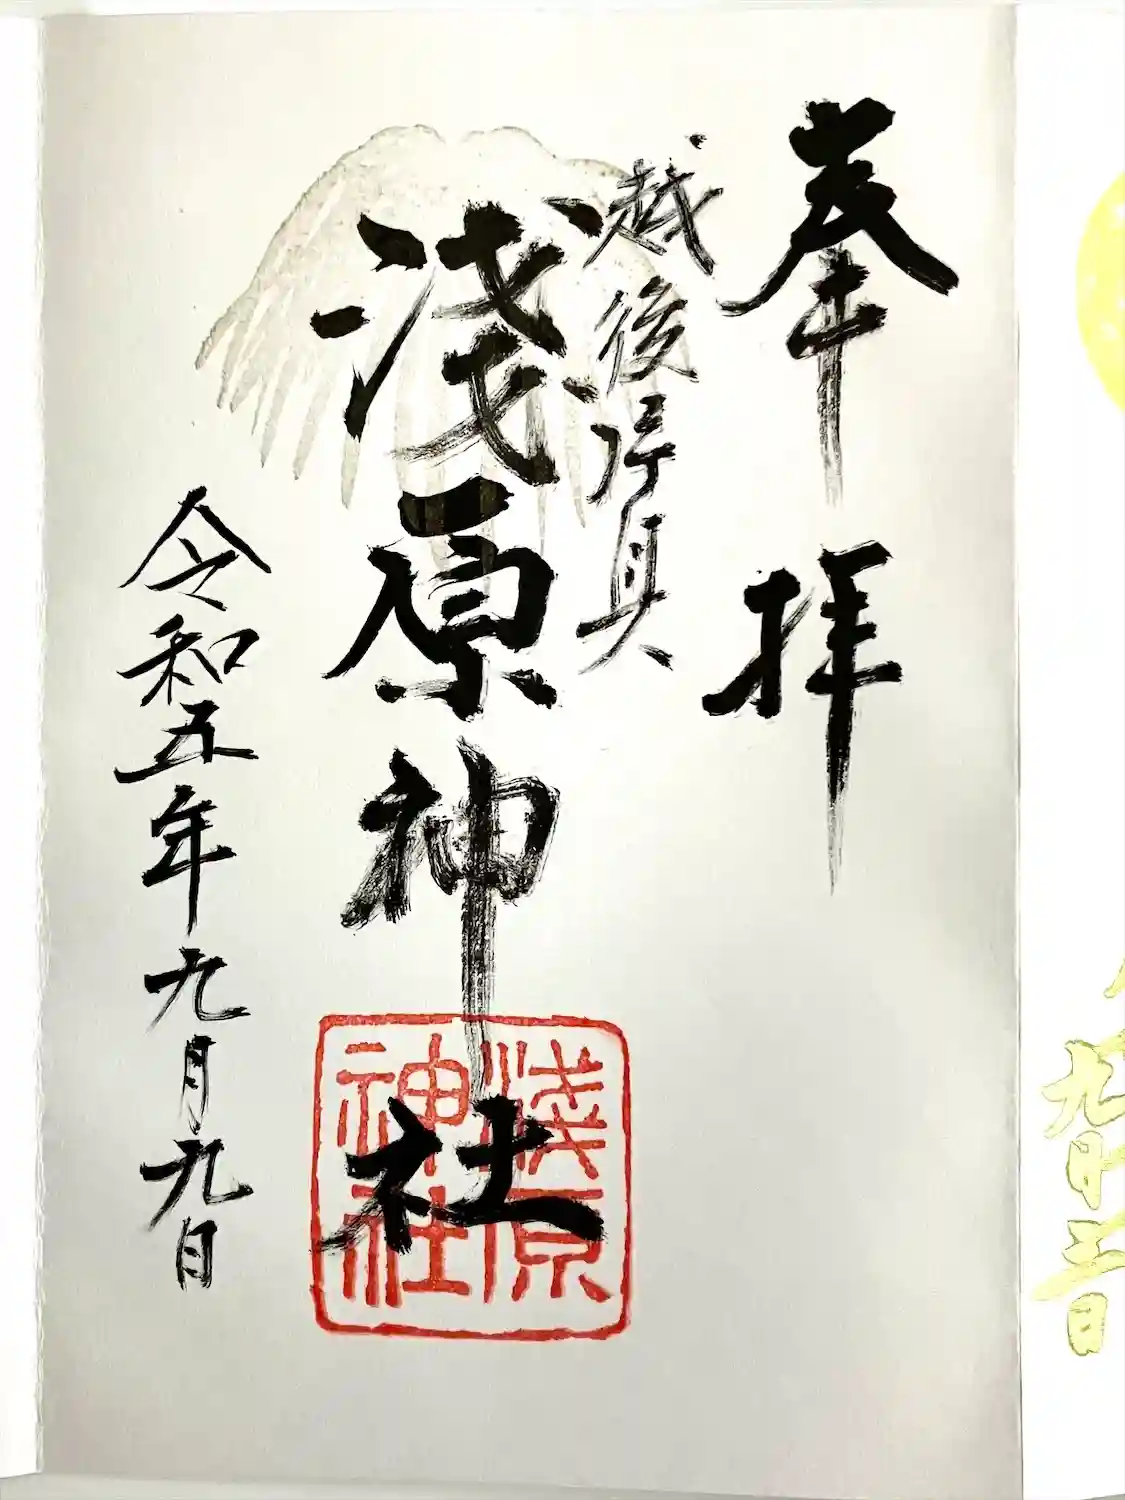 奉拝
越後片貝
浅原神社
浅原神社
令和五年九月九日
九月
日